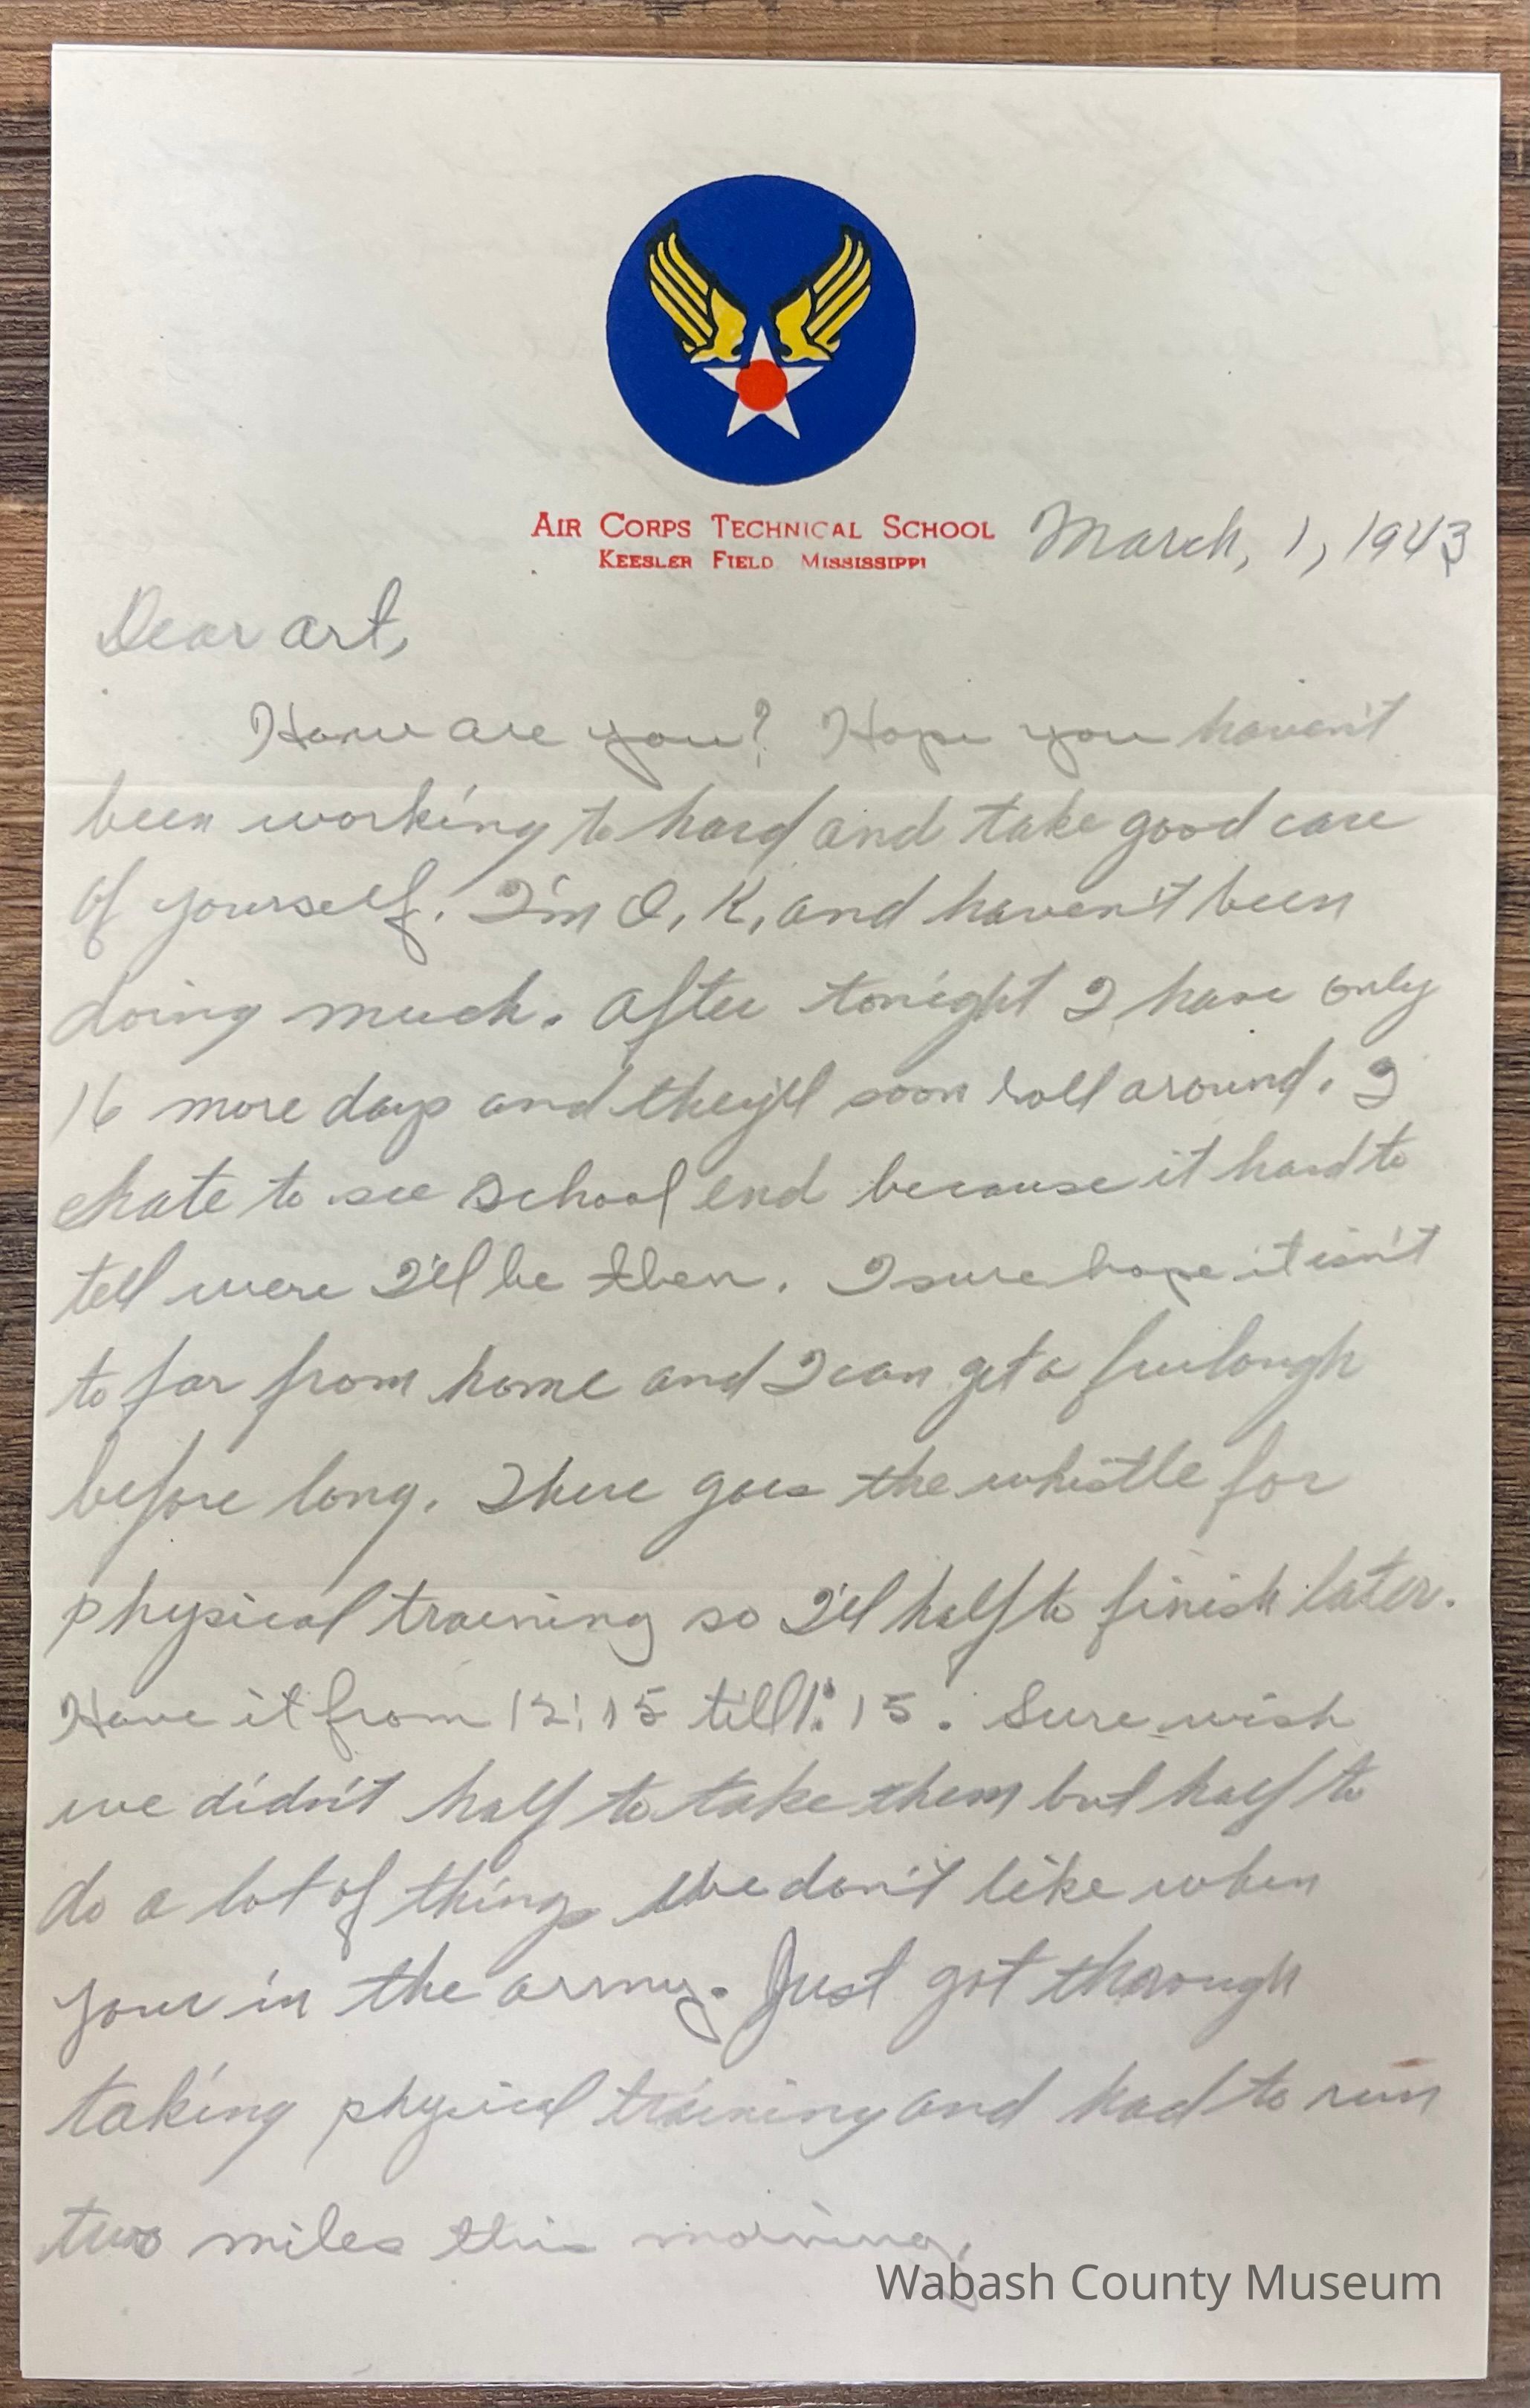 AIR CORPS TECHNICAL SCHOOL
KEESLER FIELD MISSISSIPPI
March, 1, 1943
Dear Art,
How are you? Hope you haven't
been working to hard and take good care
of yourself. I'm O, K, and haven't been
doing much. After tonight I have only
16 more days and they'll soon roll around. I
hate to see school end because it hard to
tell were I'll be then. I sure hope it isn't
to far from home and I can get a furlough
before long. There goes the whistle for
physical training so I'll half to finish later.
Have it from 12:15 till 1:15. Sure wish
we didn't half to take them but half to
do a lot of things we don't like when
your in the army. Just got through
taking physical training and had to run
two miles this morning.
Wabash County Museum